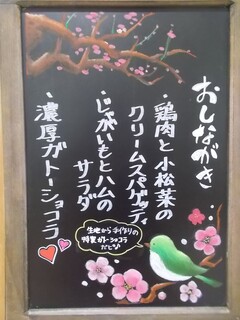 おしながき
・鶏肉と小松菜の
クリームスパゲッティ
・じゃがいもとハムの
サラダ
・濃厚ガトーショコラ
生地から手作りの
特製ガトーショコラ
だヒ♪